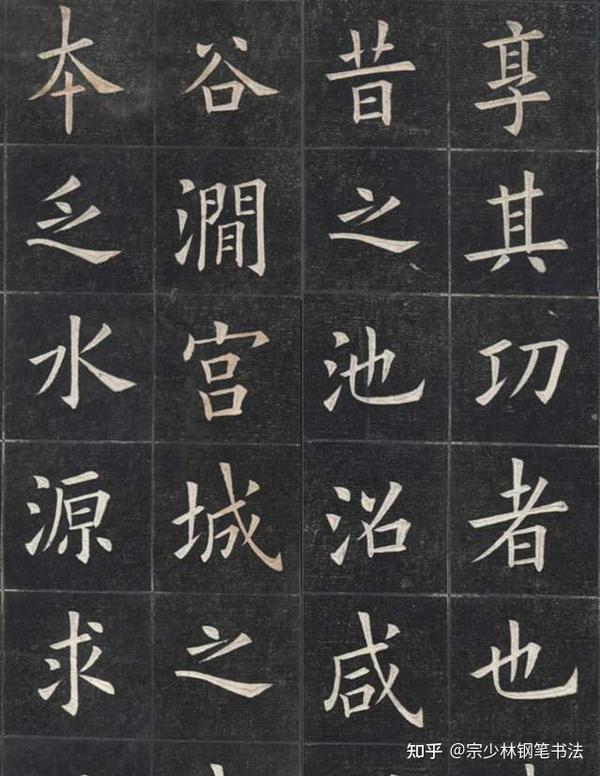 享其功者也
昔之池沼咸
谷澗宮城之
本乏水源求
知乎 @宗少林钢笔书法